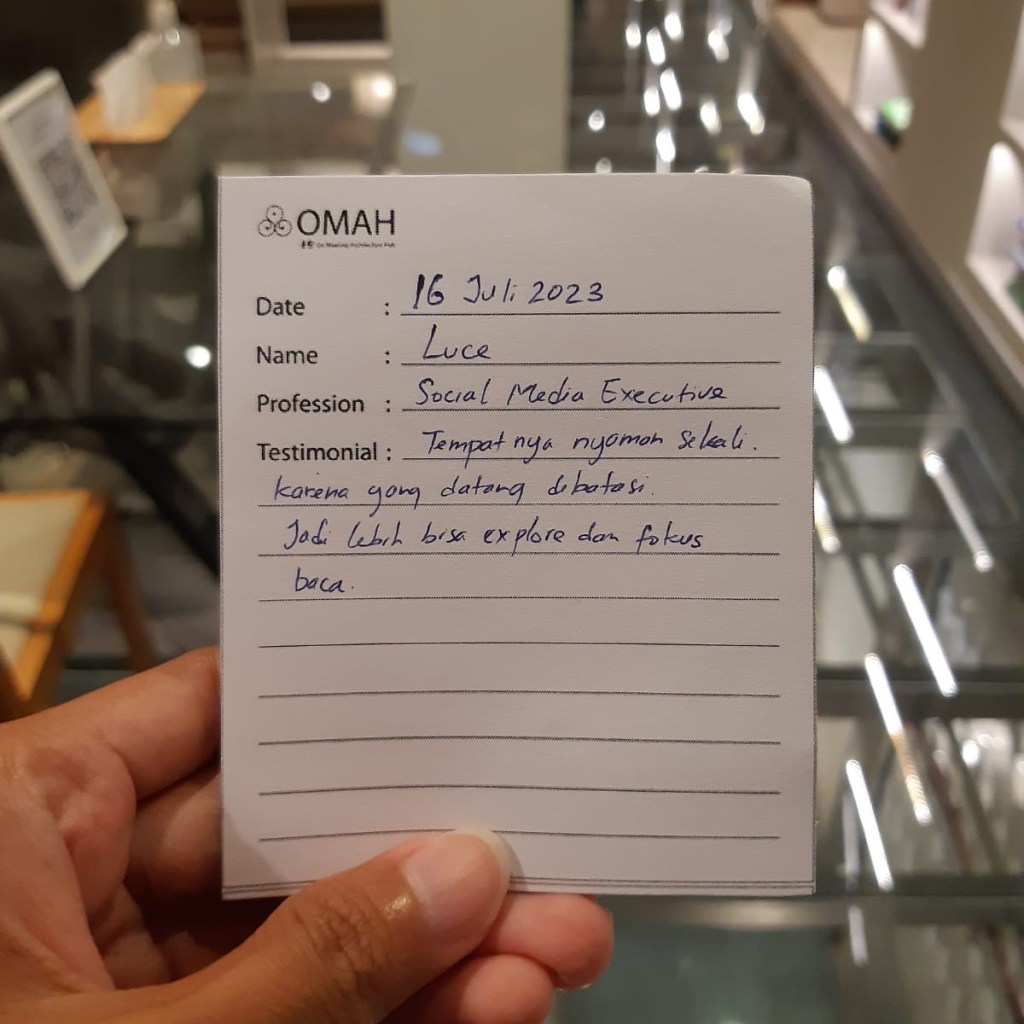 OMAH
Date : 16 Juli 2023
Name : Luce
Profession : Social Media Executive
Testimonial : Tempatnya nyaman sekali.
karena yang datang dibatasi.
Jadi lebih bisa explore dan fokus
baca.